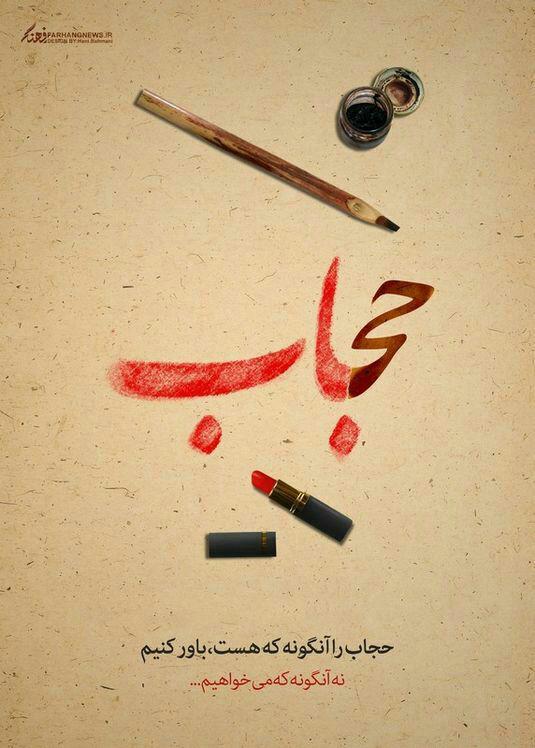 فرهنگ
FARHANGNEWS.IR
DESIGN BY:Hani.Bahmani
حجاب
حجاب را آنگونه که هست، باور کنیم
نه آنگونه که می خواهیم...